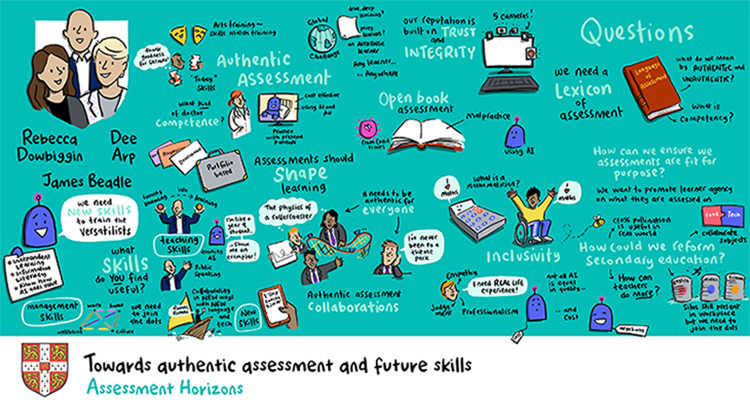 Rebecca
Dowbiggin
Dee
Arp
James Beadle
Arts training ~
skills match training
"Today"
skills
Authentic
Assessment
Global
Challenge
Any learner...
... Anywhere
our reputation is
built on TRUST
and
INTEGRITY
5 cameras!
Questions
we need a
Lexicon
of
assessment
Language
of
Assessment
what do we mean
by AUTHENTIC and
UNAUTHENTIC?
What is
competency?
what kind
of doctor
Competence?
cost effective
using AI and
Practice
with pretend
patients
Portfolio
based
Open book
assessment
malpractice
using AI
Assessments should
SHAPE
learning
How can we ensure we
assessments are fit for
purpose?
We want to promote learner agency
on what they are assessed on
we need
NEW SKILLS
to train the
Versatilists
Independent
learning
Information
literacy
Know how
to add value
what
SKILLS
do you find
useful?
teaching
skills
Public
speaking
I'm like a
year 9
student.
Show me
an
exemplar!
The physics of
a rollercoaster
needs to be
authentic for
everyone
I've never
been to a
theme
park
What is a
mathematician?
I ♥
maths
Inclusivity
cross pollination
is useful in
real world
Food
Tech
Collaborate
subjects
How could we reform
Secondary education?
How can
teachers
do more?
Silos still present
in workplace
but we need to
join the dots
management
skills
work
home
wellbeing
culture
we need
to join
the dots
Collaborating
in NEW ways
with NEW
language
and tech
New
Skills
Authentic assessment
Collaborations
Empathy
Judgement
I need REAL LIFE
experience!
Professionalism
not all AI
is equal
in quality...
... and
Cost
Towards authentic assessment and future skills
Assessment Horizons